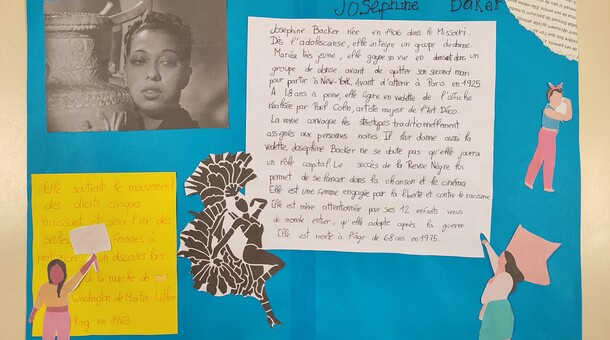 Joséphine Baker
Joséphine Backer née en 1906 dans le Missouri.
Dès l'adolescence, elle intègre un groupe de danse.
Mariée très jeune, elle gagne sa vie en dansant dans un
groupe de danse avant de quitter son second mari
pour partir à New-York. Avant d'attérir à Paris en 1925
A 18 ans à peine, elle figure en vedette de l'affiche
réalisée par Paul Colin, artiste majeur de l'Art Déco.
La revue convoque les stéréotypes traditionnellement
assignés aux personnes noires. Il leur donne aussi la
vedette, Joséphine Backer ne se doute pas qu'elle jouera
un rôle capital. Le succès de la Revue Nègre lui
permet de se lancer dans la chanson et le cinéma
Elle est une femme engagée par la liberté et contre le racisme
Elle est mère attentionnée par ses 12 enfants venus
du monde entier, qu'elle adopte après la guerre
Elle est morte à l'âge de 68 ans en 1975.
Elle soutient le mouvement
des droits civiques
naissant et sera l'une des
seules femmes à
un discours lors
de la marche de
Washington de Martin Luther
King en 1963